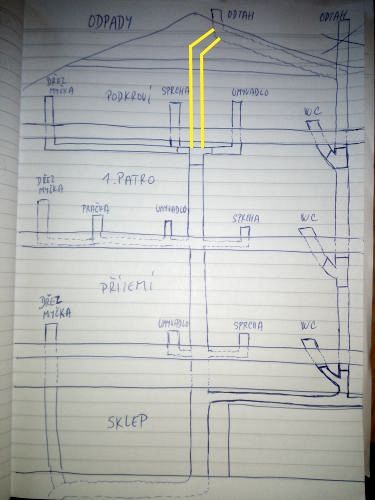 ODPADY
ODTAH
ODTAH
DŘEZ
MYČKA
PODKROVÍ
SPRCHA
UMYVADLO
WC
1. PATRO
DŘEZ
MYČKA
PRAČKA
UMYVADLO
SPRCHA
WC
PŘÍZEMÍ
DŘEZ
MYČKA
UMYVADLO
SPRCHA
WC
SKLEP